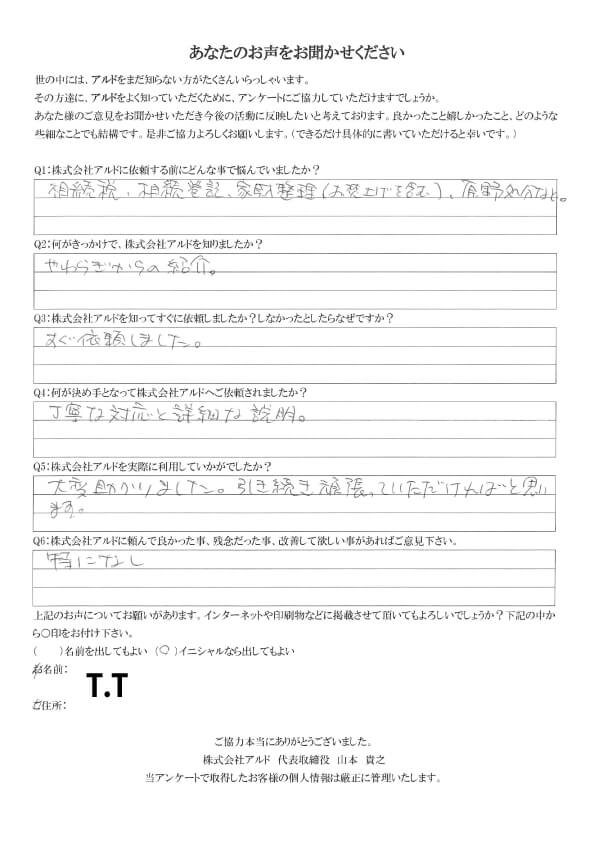 あなたのお声をお聞かせください
世の中には、アルドをまだ知らない方がたくさんいらっしゃいます。
その方達に、アルドをよく知っていただくために、アンケートにご協力していただけますでしょうか。
あなた様のご意見をお聞かせいただき今後の活動に反映したいと考えております。良かったこと嬉しかったこと、どのような
些細なことでも結構です。是非ご協力よろしくお願いします。（できるだけ具体的に書いていただけると幸いです。）
Q1：株式会社アルドに依頼する前にどんな事で悩んでいましたか？
相続税、相続登記、家財整理（お焚上げを含む）、原野処分など。
Q2：何がきっかけで、株式会社アルドを知りましたか？
やわらぎからの紹介。
Q3：株式会社アルドを知ってすぐに依頼しましたか？しなかったとしたらなぜですか？
すぐ依頼しました。
Q4：何が決め手となって株式会社アルドへご依頼されましたか？
丁寧な対応と詳細な説明。
Q5：株式会社アルドを実際に利用していかがでしたか？
大変助かりました。引き続き頑張っていただければと思い
ます。
Q6：株式会社アルドに頼んで良かった事、残念だった事、改善して欲しい事があればご意見下さい。
特になし
上記のお声についてお願いがあります。インターネットや印刷物などに掲載させて頂いてもよろしいでしょうか？下記の中か
ら〇印をお付け下さい。
（　　）名前を出してもよい （〇）イニシャルなら出してもよい
お名前：
T.T
ご住所：
ご協力本当にありがとうございました。
株式会社アルド 代表取締役 山本 貴之
当アンケートで取得したお客様の個人情報は厳正に管理いたします。